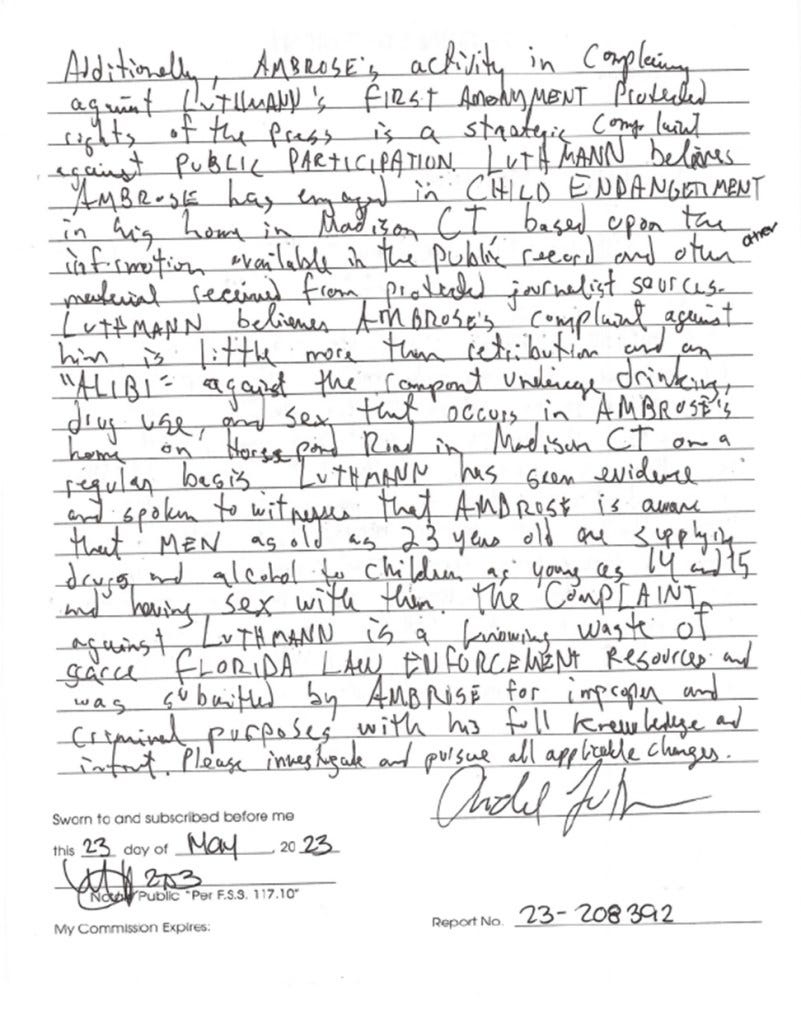 Additionally, AMBROSE's activity in Complaining
against LUTHMANN's FIRST AMENDMENT Protected
rights of the Press is a strategic Complaint
against PUBLIC PARTICIPATION. LUTHMANN believes
AMBROSE has engaged in CHILD ENDANGERMENT
in his home in Madison CT, based upon the
information available in the public record and other other
material received from protected journalist sources.
LUTHMANN believes AMBROSE's complaint against
him is little more than retribution and an
"ALIBI" against the rampant underage drinking,
drug use, and sex that occurs in AMBROSE's
home on Horse Pond Road in Madison CT on a
regular basis. LUTHMANN has seen evidence
and spoken to witnesses that AMBROSE is aware
that MEN as old as 23 years old are supplying
drugs and alcohol to children as young as 14 and 15
and having sex with them. The COMPLAINT
against LUTHMANN is a knowing waste of
scarce FLORIDA LAW ENFORCEMENT Resources and
was submitted by AMBROSE for improper and
criminal purposes with his full knowledge and
intent. Please investigate and pursue all applicable charges.
Sworn to and subscribed before me
this 23 day of May, 2023
203
Notary Public "Per F.S.S. 117.10"
My Commission Expires:
Report No. 23-208392